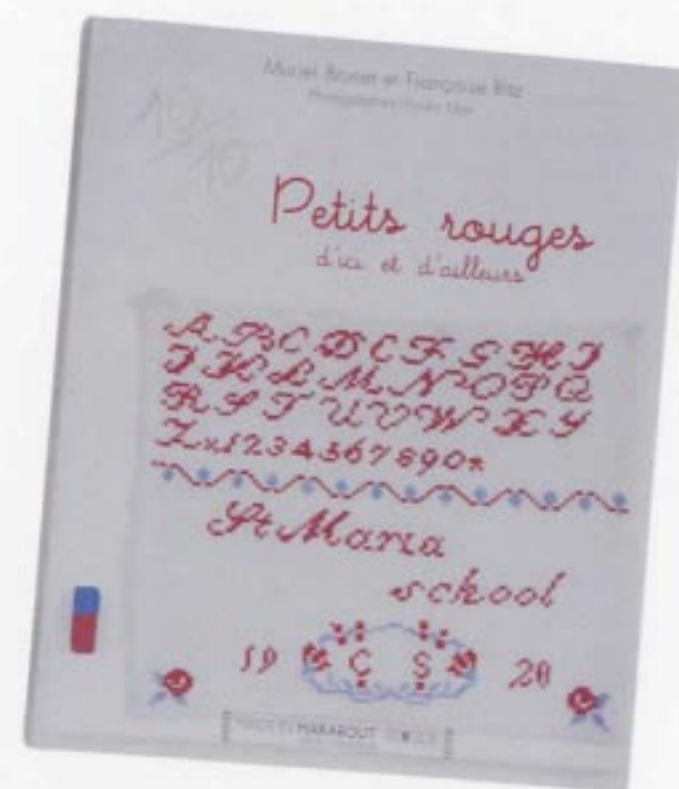 Muriel Brunet et Françoise Ritz
Photographies
Petits rouges
d'ici et d'ailleurs
A B C D E F G H I
J K L M N O P Q
R S T U V W X Y
Z x 1 2 3 4 5 6 7 8 9 0 *
St Maria
school
19 C S 20
MARABOUT